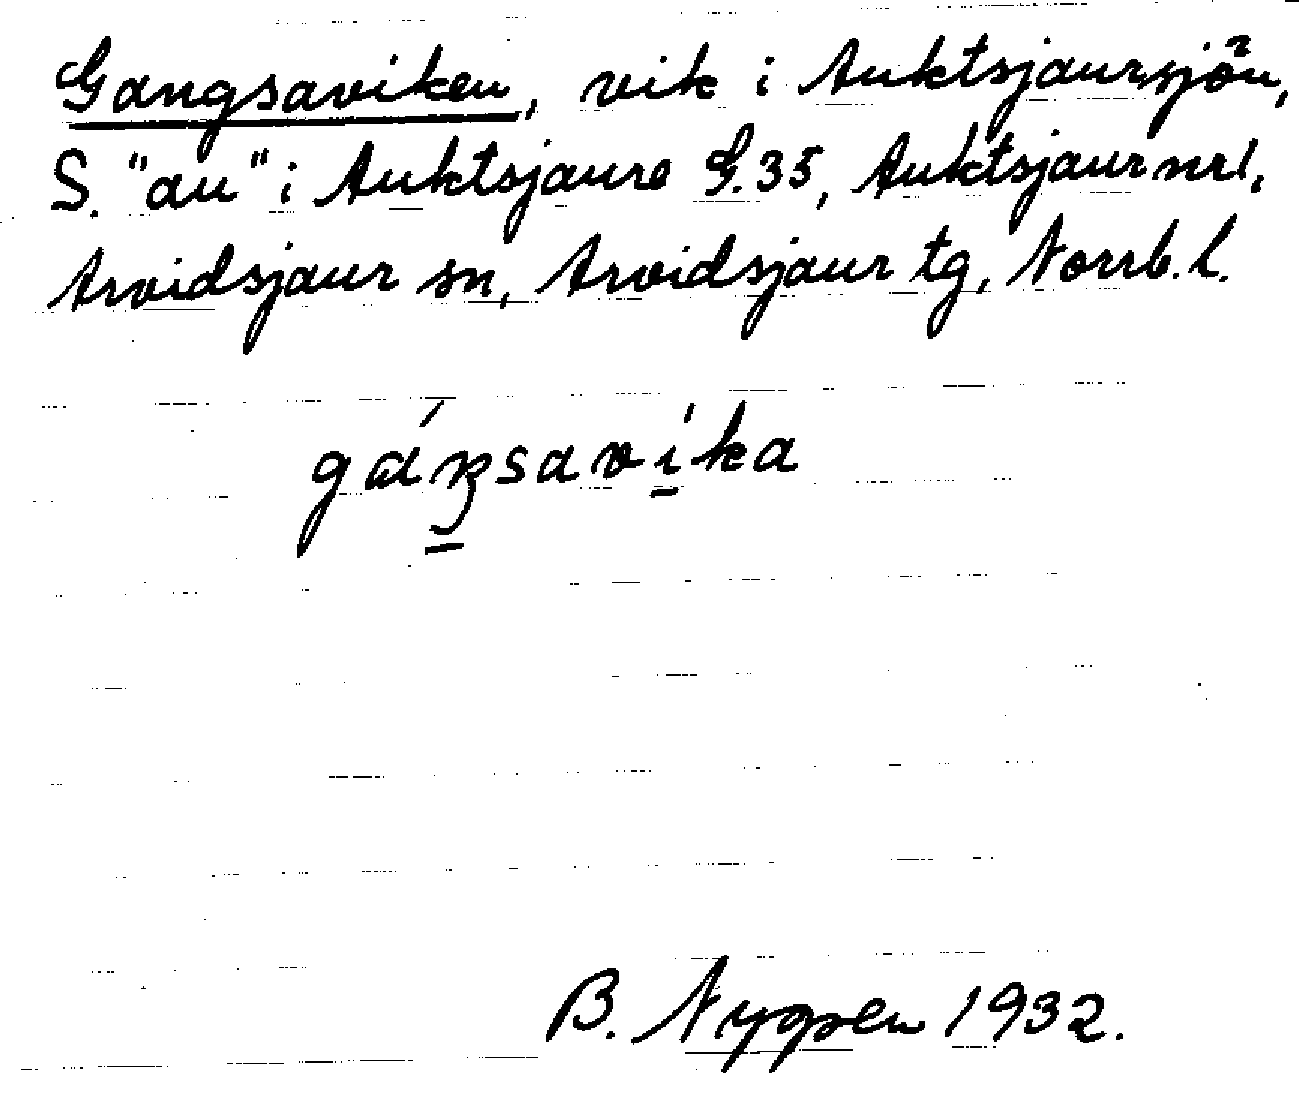 Gangsaviken, vik i Auktsjaursjön,
S. "au" i Auktsjaure G.35, Auktsjaur nr 1,
Arvidsjaur sn, Arvidsjaur tg, Norrb. l.
B. Nygren 1932.